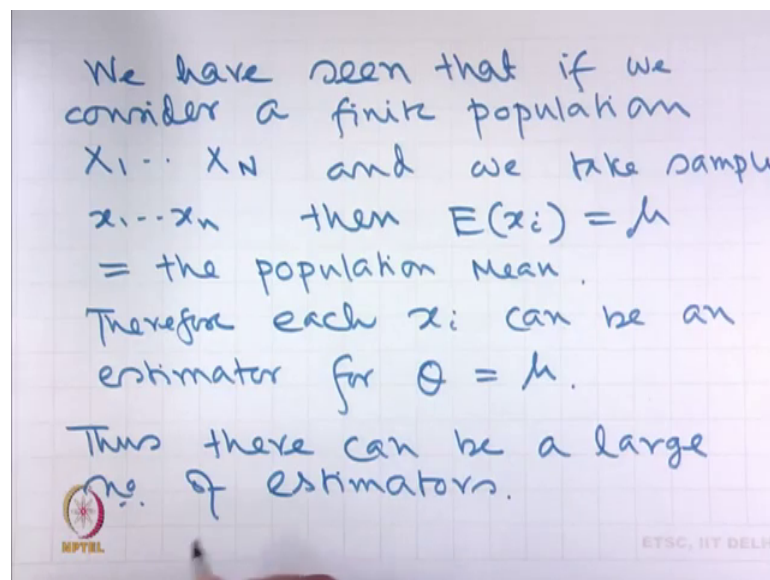 We have seen that if we
consider a finite population
X₁ .. X_N and we take sample
x₁ .. xₙ then E(xᵢ) = μ
= the population Mean.
Therefore each xᵢ can be an
estimator for θ = μ.
Thus there can be a large
no. of estimators.
NPTEL
ETSC, IIT DELH